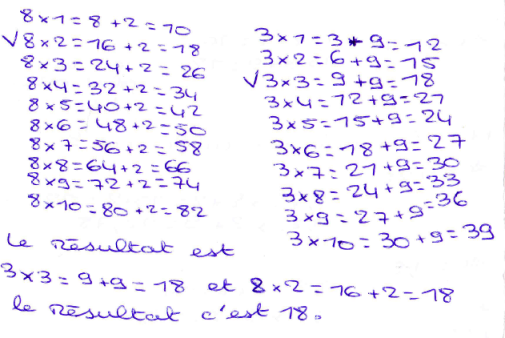 8×1=8+2=10
√8×2=16+2=18
8×3=24+2=26
8×4=32+2=34
8×5=40+2=42
8×6=48+2=50
8×7=56+2=58
8×8=64+2=66
8×9=72+2=74
8×10=80+2=82
3×1=3+9=12
3×2=6+9=15
√3×3=9+9=18
3×4=12+9=21
3×5=15+9=24
3×6=18+9=27
3×7=21+9=30
3×8=24+9=33
3×9=27+9=36
3×10=30+9=39
Le résultat est
3×3=9+9=18 et 8×2=16+2=18
le résultat c'est 18.